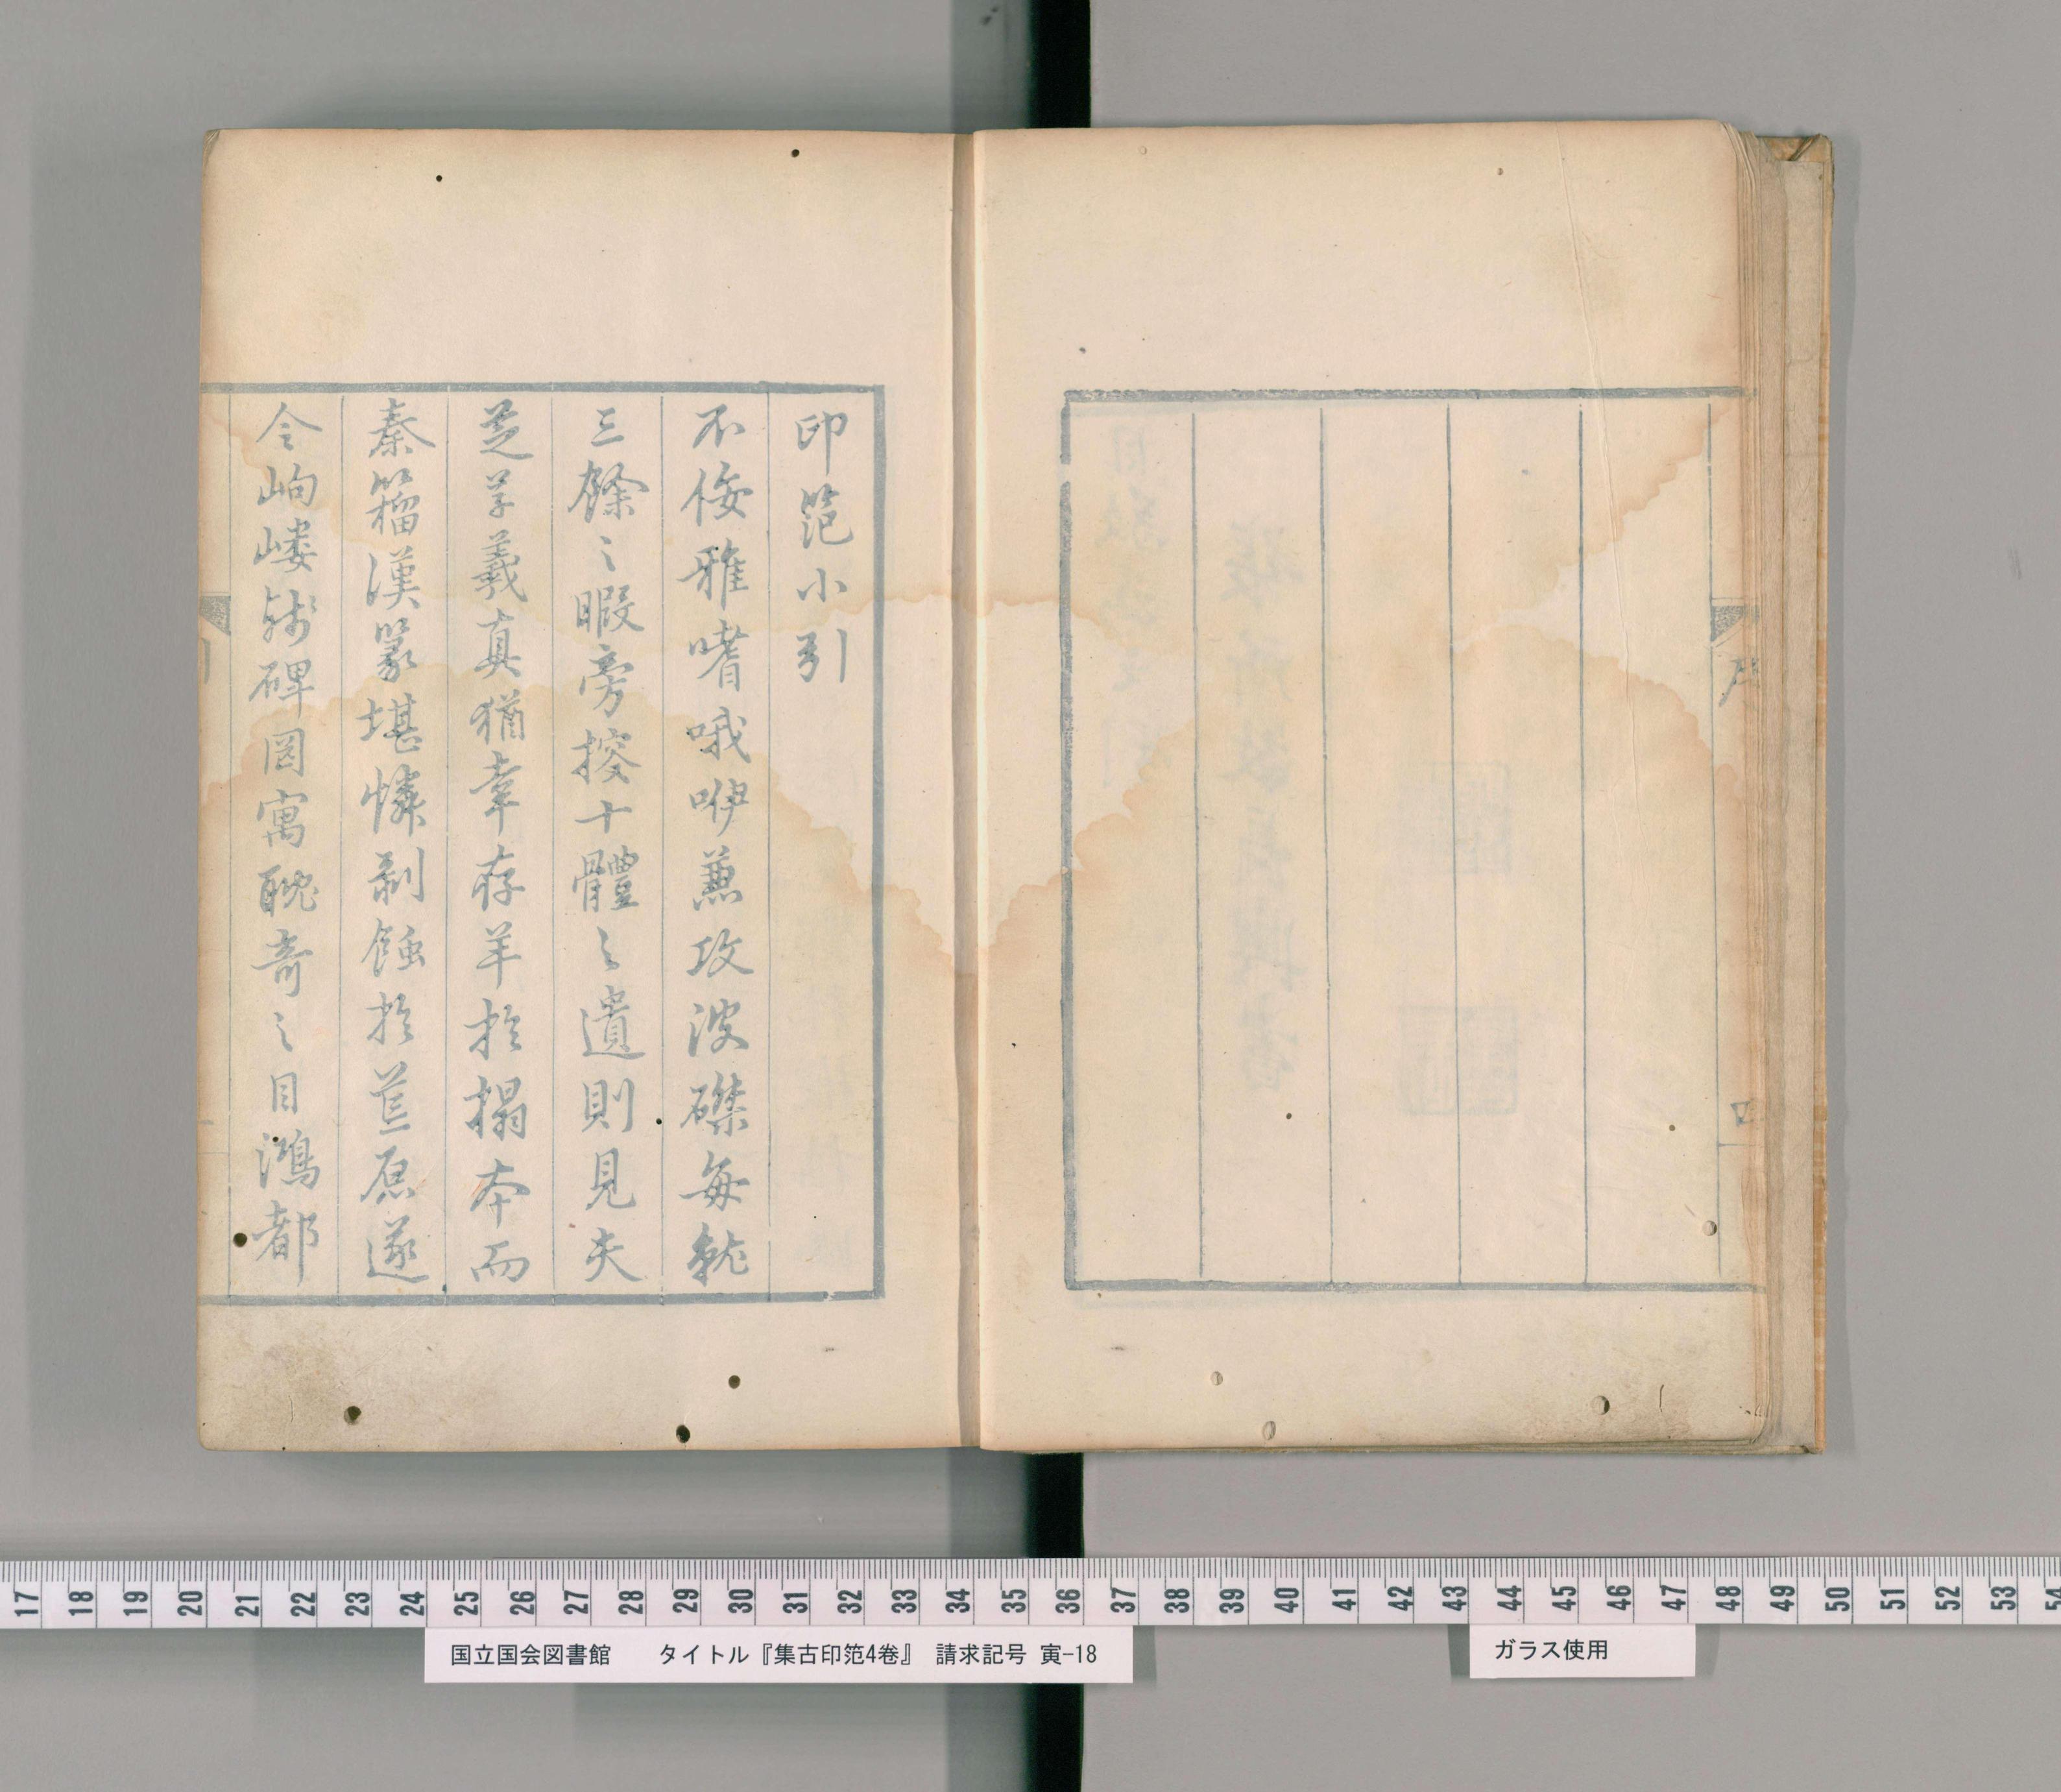 四
印笵小引
不佞雅嗜哦咿兼攻波磔每就
三餘之暇旁搜十體之遺則見夫
芝草羲真猶幸存羊於搨本而
秦籀漢篆堪憐剥蝕於荒原遂
令岣嶁殘碑罔寓耽奇之目鴻都
引
17 18 19 20 21 22 23 24 25 26 27 28 29 30 31 32 33 34 35 36 37 38 39 40 41 42 43 44 45 46 47 48 49 50 51 52 53 54
国立国会図書館 タイトル『集古印笵4巻』 請求記号 寅-18
ガラス使用